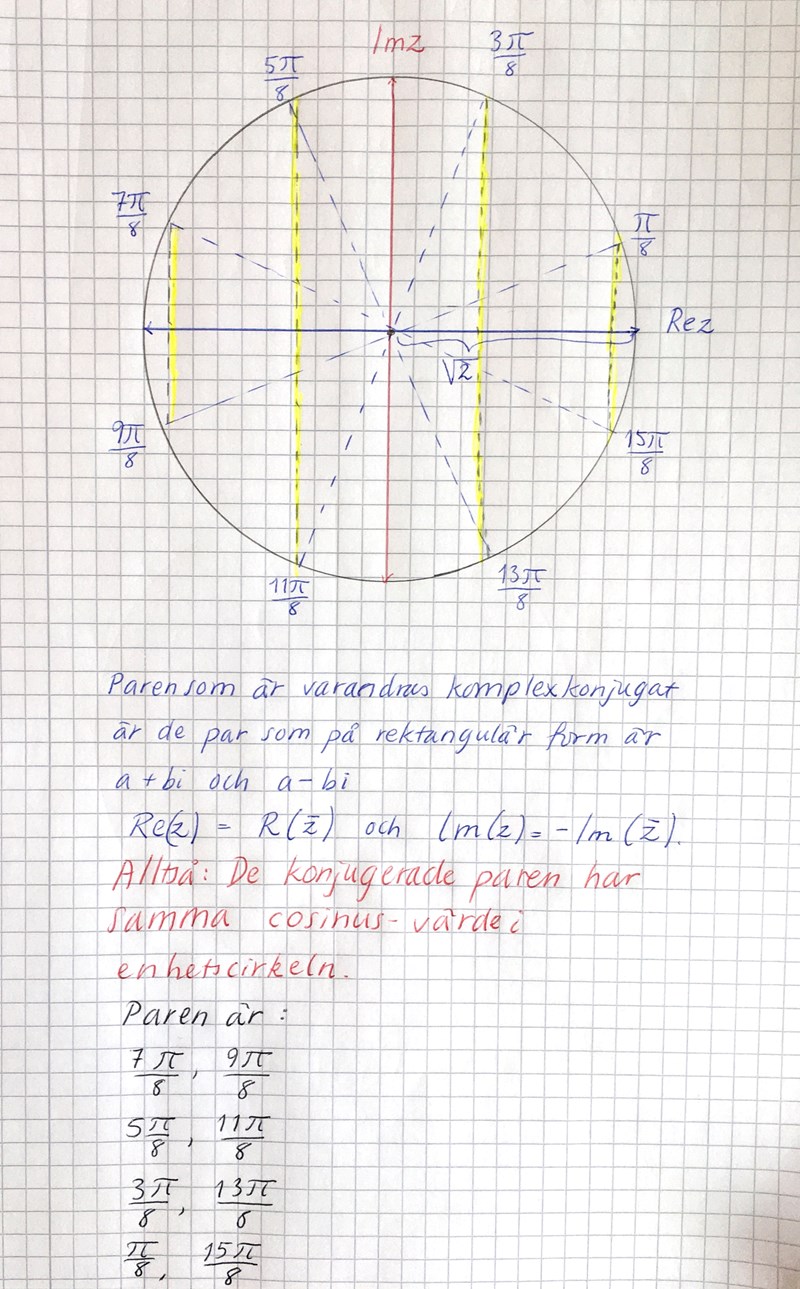 Imz
3π/8
5π/8
7π/8
π/8
Rez
√2
9π/8
15π/8
11π/8
13π/8
Paren som är varandras komplexkonjugat
är de par som på rektangulär form är
a+bi och a-bi
Re(z) = R(z̄) och Im(z) = -Im(z̄).
Alltså: De konjugerade paren har
samma cosinus-värde i
enhetscirkeln.
Paren är:
7π/8, 9π/8
5π/8, 11π/8
3π/8, 13π/8
π/8, 15π/8